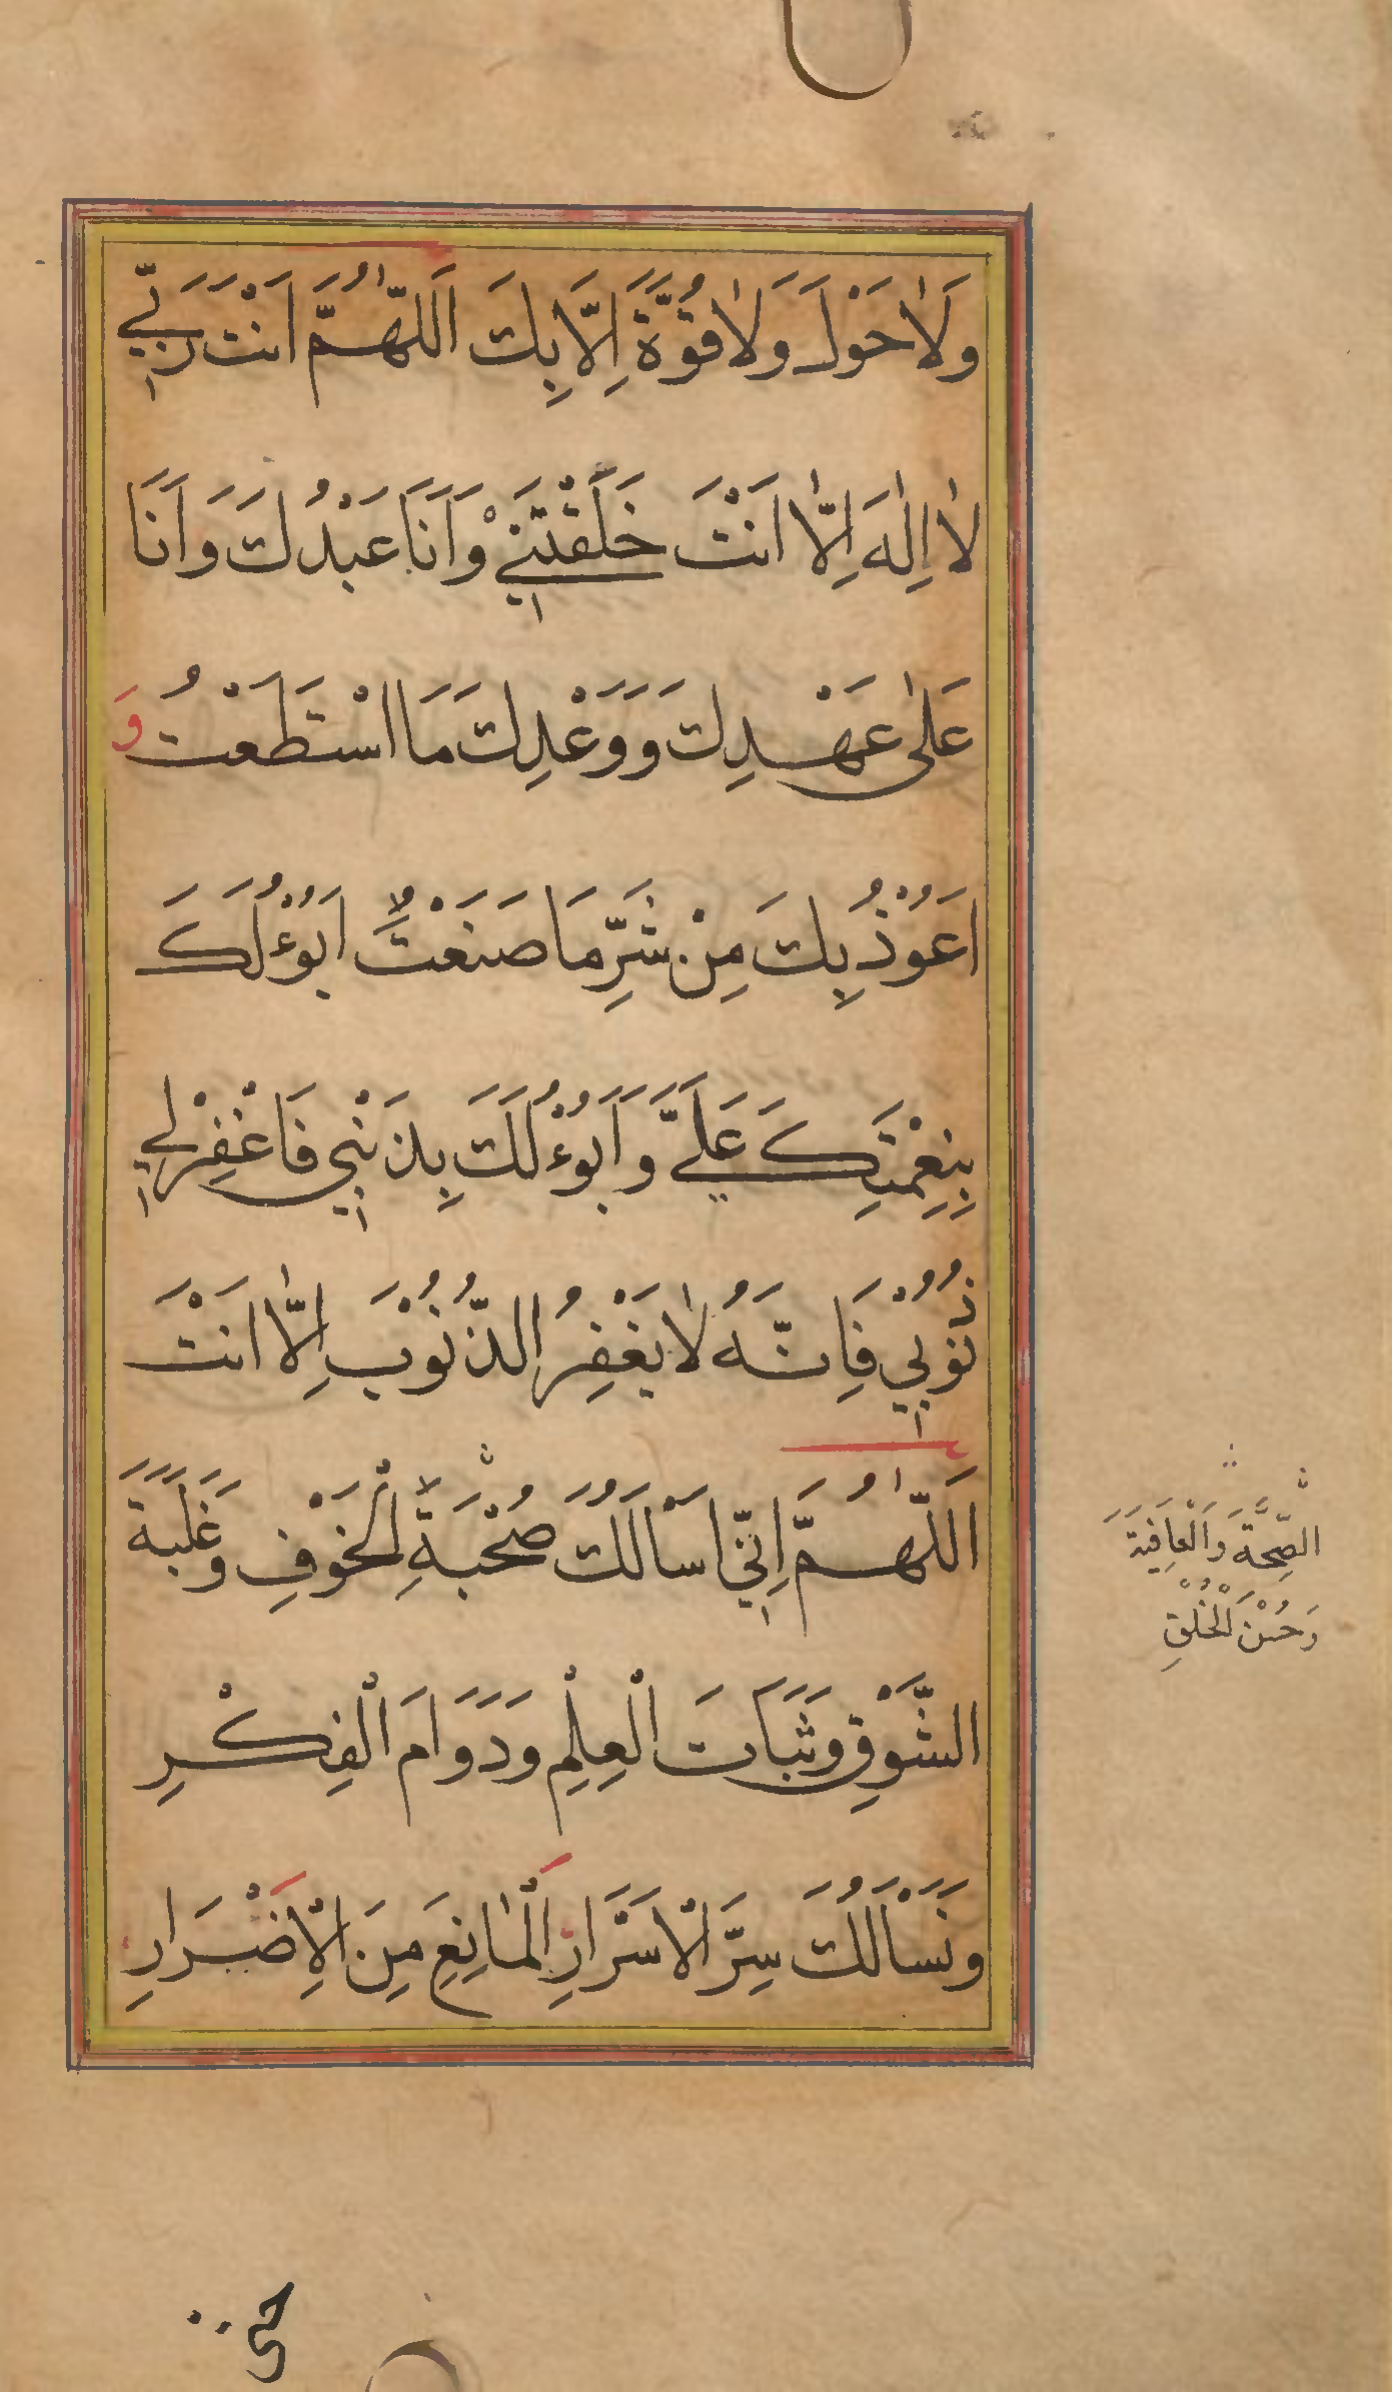 وَلَا حَوْلَ وَلَا قُوَّةَ اِلَّا بِكَ اَللّٰهُمَّ اَنْتَ رَبِّي
لَا اِلٰهَ اِلَّا اَنْتَ خَلَقْتَنِيْ وَاَنَا عَبْدُكَ وَاَنَا
عَلٰى عَهْدِكَ وَوَعْدِكَ مَا اسْتَطَعْتُ وَ
اَعُوْذُ بِكَ مِنْ شَرِّ مَا صَنَعْتُ اَبُوْءُ لَكَ
بِنِعْمَتِكَ عَلَيَّ وَاَبُوْءُ لَكَ بِذَنْبِي فَاغْفِرْ لِي
ذُنُوْبِي فَاِنَّهُ لَا يَغْفِرُ الذُّنُوْبَ اِلَّا اَنْتَ
اَللّٰهُمَّ اِنِّي اَسْاَلُكَ صُحْبَةَ الْخَوْفِ وَغَلَبَةَ
الصِّحَّةَ وَالْعَافِيَةَ
وَحُسْنَ الْخُلْقِ
الشَّوْقِ وَثَبَاتَ الْعِلْمِ وَدَوَامَ الْفِكْرِ
وَنَسْاَلُكَ سِرَّ الْاَسْرَارِ الْمَانِعِ مِنَ الْاِضْرَارِ